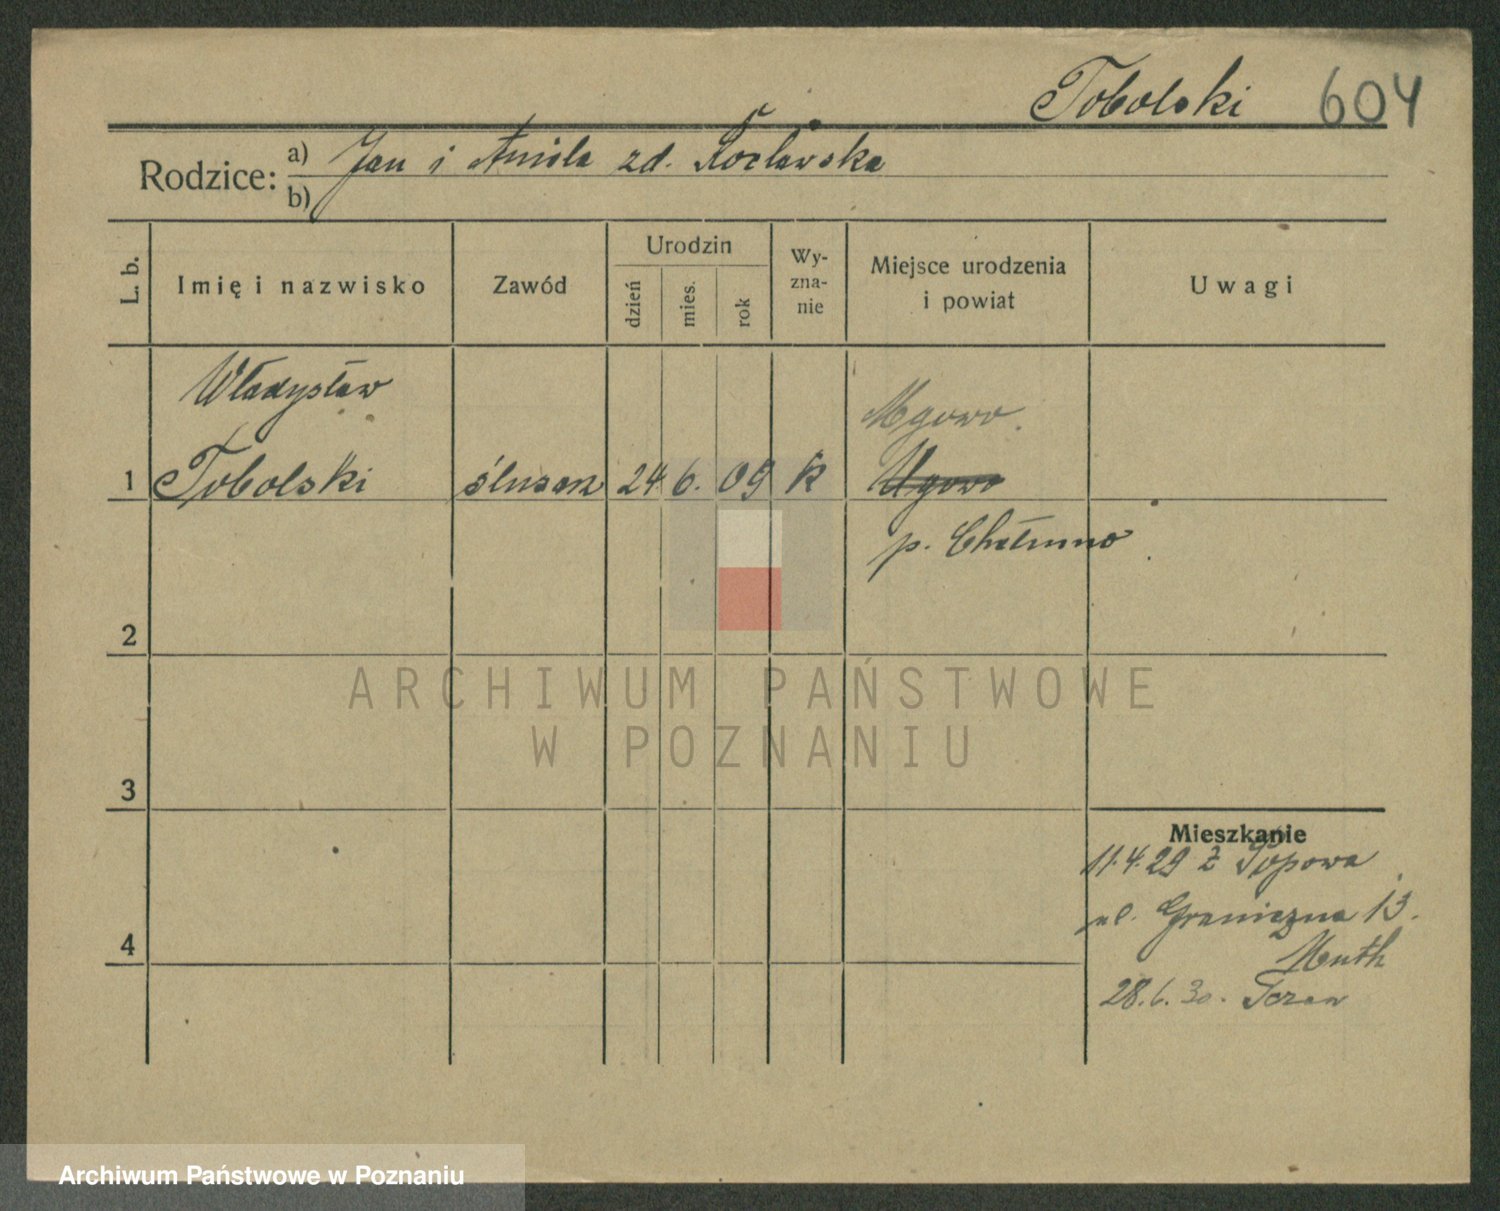 Tobolski 604
Rodzice: a) Jan i Aniela zd. Kocławska
b)
L. b. Imię i nazwisko Zawód Urodzin dzień mies. rok Wy-zna-nie Miejsce urodzenia i powiat Uwagi
Władysław
Mgowo
1 Tobolski ślusarz 24 6. 09 k Ugowo
p. Chełmno
2
3
Mieszkanie
11.4.29 z
ul. Graniczna 13.
4
28.6.30.
ARCHIWUM PAŃSTWOWE
W POZNANIU
Archiwum Państwowe w Poznaniu